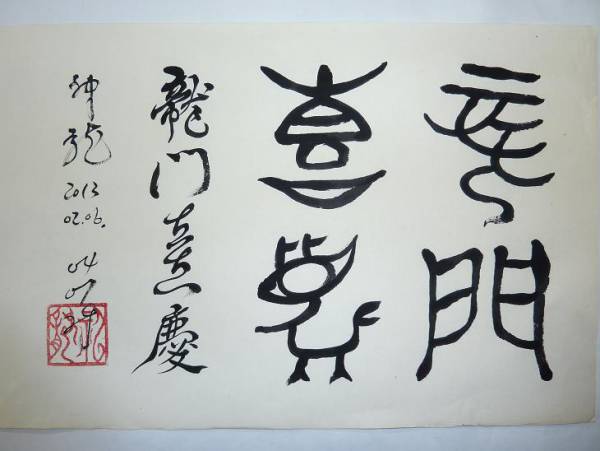 龍門
喜慶
龍門喜慶
2013
02.06.